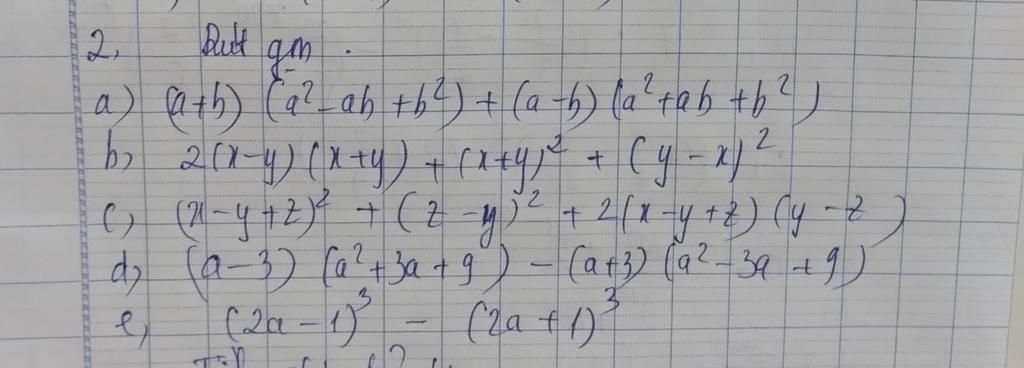 2, Rút gọn.
a) (a+b) (a² - ab + b²) + (a - b) (a² + ab + b²)
b, 2(x-y) (x+y) + (x+y)² + (y - x)²
c, (x - y + z)² + (z - y)² + 2(x - y + z) (y - z)
d, (a - 3) (a² + 3a + 9) - (a+3) (a² - 3a + 9)
e, (2a - 1)³ - (2a + 1)³